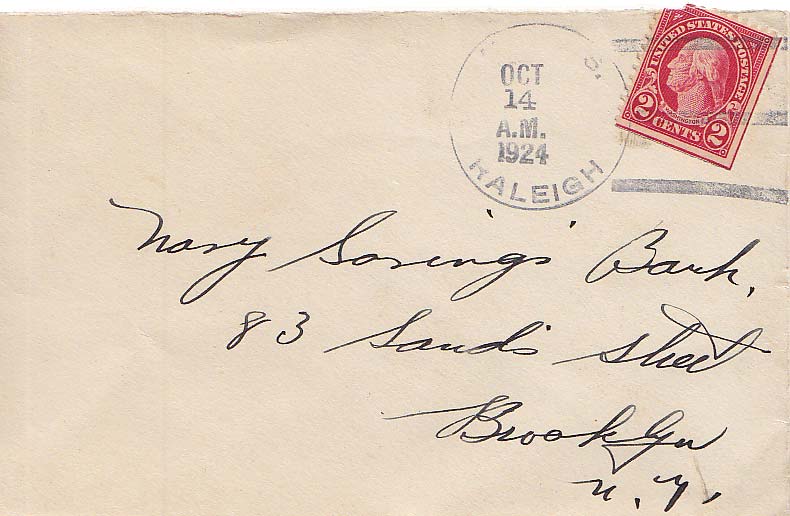 OCT
14
A.M.
1924
RALEIGH
UNITED STATES POSTAGE
WASHINGTON
2 CENTS 2
Navy Savings Bank,
83 Sands Street
Brooklyn
N.Y.